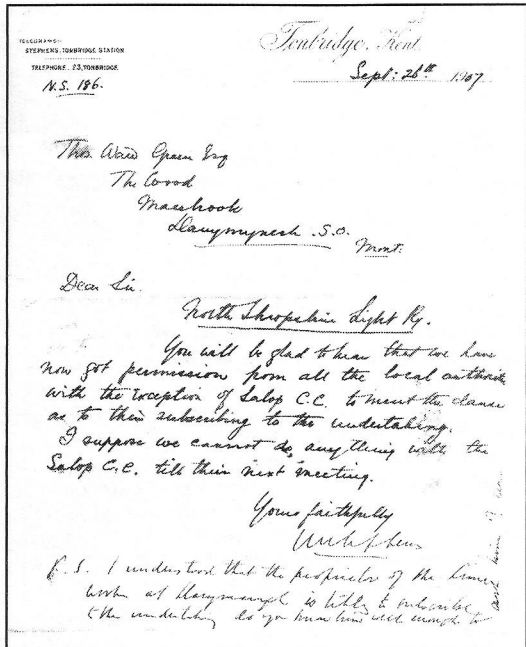 TELEGRAMS:-
STEPHENS, TONBRIDGE STATION
TELEPHONE. 23, TONBRIDGE.
N.S. 186.
Tonbridge, Kent
Sept: 26th 1907
Thos. Ward Green Esq
The Wood
Maesbrook
Llanymynech. S.O.
Mont:
Dear Sir.
North Shropshire Light Ry.
You will be glad to hear that we have
now got permission from all the local authorities
with the exception of Salop C.C. to insert the clause
as to their subscribing to the undertaking.
I suppose we cannot do anything with the
Salop C.C. till their next meeting.
Yours faithfully
P.S. I understand that the proprietor of the lime
works at Llanymynech is likely to subscribe
to the undertaking do you know him well enough to